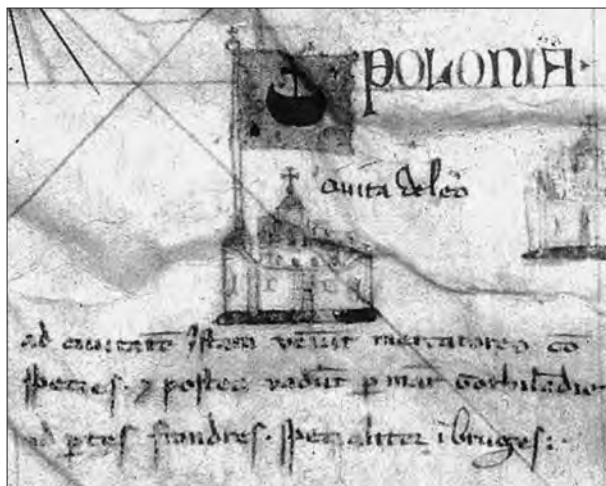 POLONIA·
ciuita de leō
ad ciuitatē istam veniūt mercatores cō
speties · ⁊ postea vadūt p mar̄
ad ptes frandres · spetialiter ī bruges:·